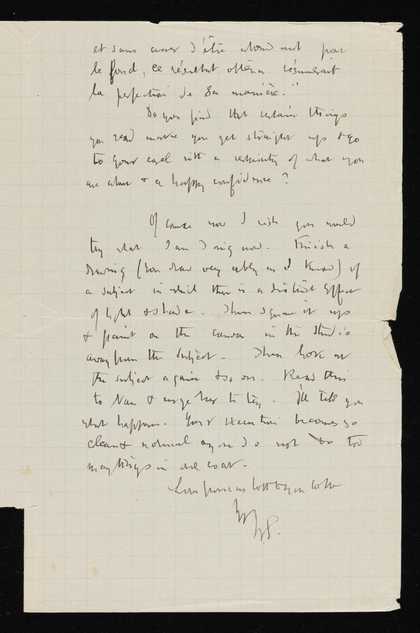 et sans avoir d'être abondant par
le fond, ce résultat obtenu résumerait
la perfection de sa manière."
Do you find that certain things
you read make you get straight up & go
to your easel with a certainty of what you
are after & a happy confidence?
Of course now I wish you would
try what I am doing now. Finish a
drawing (you draw very ably as I know) of
a subject in which there is a distinct effect
of light & shade. Then square it up
& paint on the canvas in the studio
away from the subject. Then look at
the subject again & so on. Read this
to Nan & urge her to try. I'll tell you
what happens. Your execution becomes so
clean & normal as you do not do too
many things in one coat.
Love from us both to you both